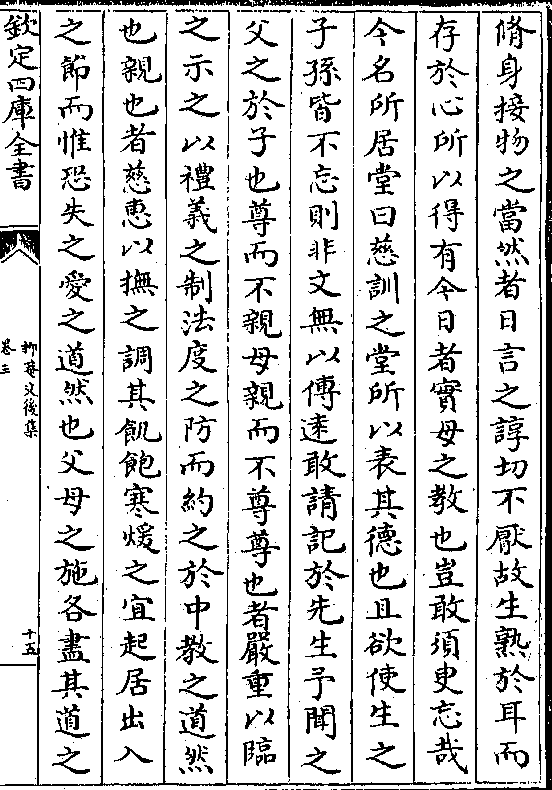 脩身接物之當然者日言之諄切不厭故生熟於耳而
存於心所以得有今日者實母之教也豈敢須臾忘哉
今名所居堂曰慈訓之堂所以表其德也且欲使生之
子孫皆不忘則非文無以傳逺敢請記於先生予聞之
父之於子也尊而不親母親而不尊尊也者嚴重以臨
之示之以禮義之制法度之防而約之於中教之道然
也親也者慈惠以撫之調其飢飽寒煖之宜起居出入
之節而惟恐失之愛之道然也父母之施各盡其道之
欽定四庫全書
抑菴文後集
卷三
十五